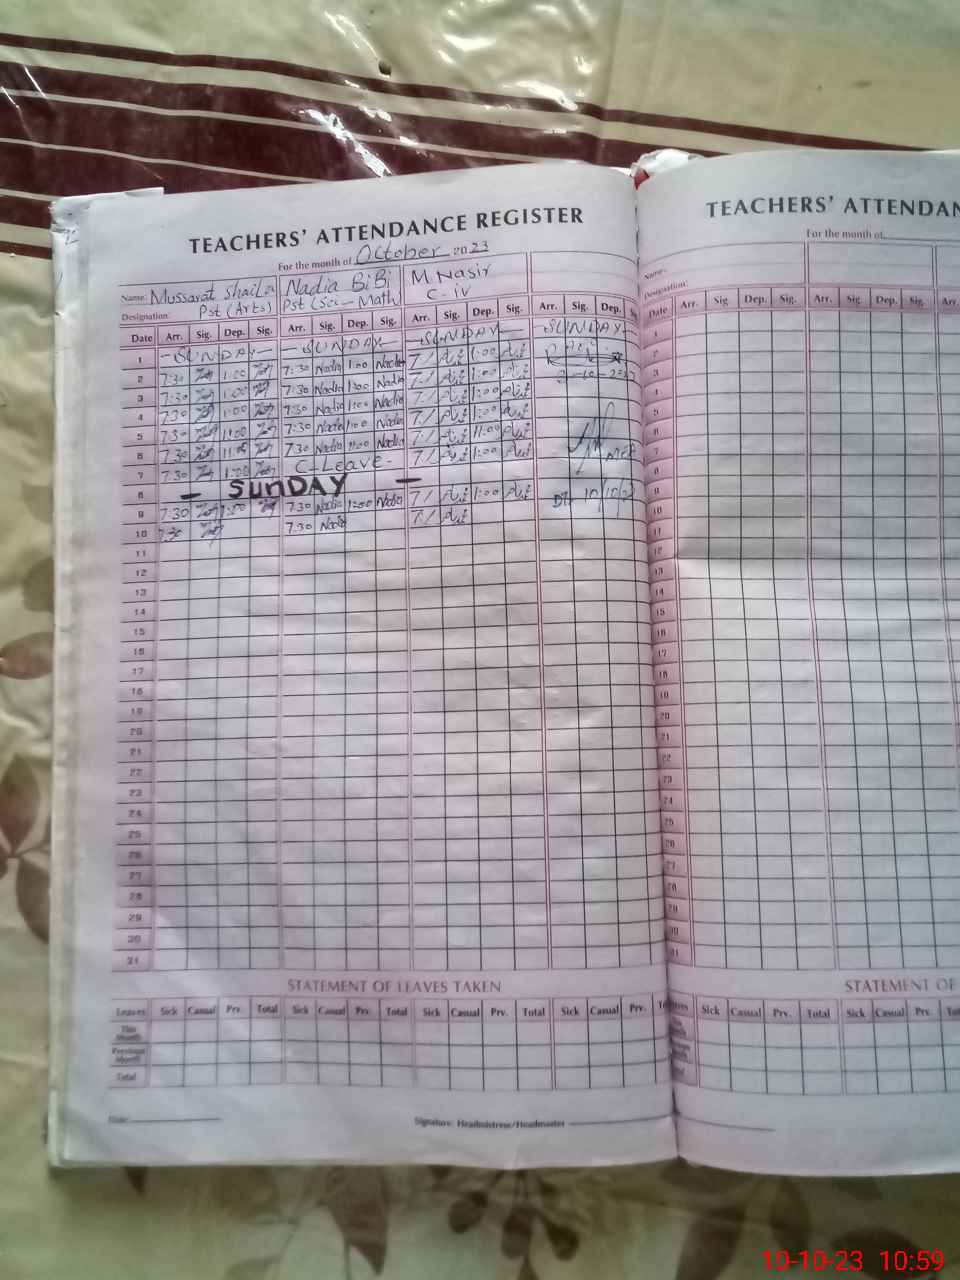 TEACHERS' ATTENDANCE REGISTER
For the month of October 2023
Name: Mussarat Nadia BiBi M. Nasir
Designation: Pst (Arts) Pst (Sci-Math) C-iv
Date Arr. Sig. Dep. Sig. Arr. Sig. Dep. Sig. Arr. Sig. Dep. Sig. Arr. Sig. Dep.
1 -SUNDAY- -SUNDAY- -SUNDAY- -SUNDAY-
2 7:30 1:00 7:30 Nadia 1:00 Nadia 7/ 1:00
3 7:30 1:00 7:30 Nadia 1:00 Nadia 7/ 1:00
4 7:30 1:00 7:30 Nadia 1:00 Nadia 7/ 1:00
5 7:30 11:00 7:30 Nadia 1:00 Nadia 7/ 1:00
6 7:30 11:00 7:30 Nadia 11:00 Nadia 7/ 11:00
7 7:30 1:00 C-Leave- 7/ 1:00
8 - SunDAY -
9 7:30 1:00 7:30 Nadia 1:00 Nadia 7/ 1:00 10/10/23
10 7:30 7:30 Nadia 7/
11
12
13
14
15
16
17
18
19
20
21
22
23
24
25
26
27
28
29
30
31
STATEMENT OF LEAVES TAKEN
Leaves Sick Casual Prv. Total Sick Casual Prv. Total Sick Casual Prv. Total Sick Casual Prv.
This Month
Previous Month
Total
Date:
Signature: Headmistress/Headmaster
TEACHERS' ATTENDAN
For the month of
Name:
Designation:
Date Arr. Sig. Dep. Sig. Arr. Sig. Dep. Sig. Arr.
1
2
3
4
5
6
7
8
9
10
11
12
13
14
15
16
17
18
19
20
21
22
23
24
25
26
27
28
29
30
31
STATEMENT OF
Sick Casual Prv. Total Sick Casual Prv.
10-10-23 10:59